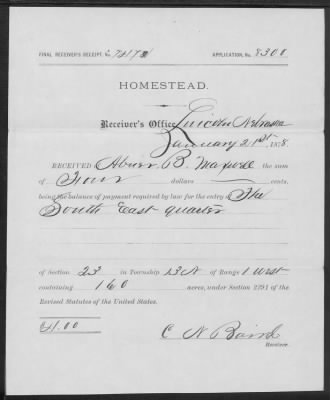 FINAL RECEIVER'S RECEIPT,
APPLICATION, No. 8300
HOMESTEAD.
Receiver's Office, Lincoln Nebraska
January 21st, 1878.
RECEIVED Abner B. Maxwell the sum
of Four dollars cents,
being the balance of payment required by law for the entry of The
South East quarter
of Section 23 in Township 13 N of Range 1 West
containing 160 acres, under Section 2291 of the
Revised Statutes of the United States.
$4.00
C N Baird
Receiver.